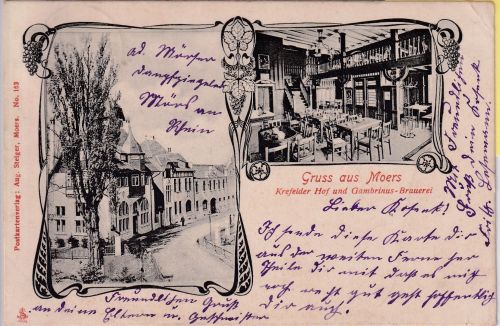 Postkartenverlag: Aug. Steiger, Moers. No. 153
ad. Mörser
Dampfziegelei
Mörs am
Rhein
Gruss aus Moers
Krefelder Hof und Gambrinus-Brauerei
Lieber
Ich sende diese Karte dir
aus der weiten Ferne her
Theile dir mit daß es mir
noch recht gut geht hoffentlich
dir auch.
Freundlichen Gruß
an deine Eltern u. Geschwister
Mit Freundlichem
Gruß dein